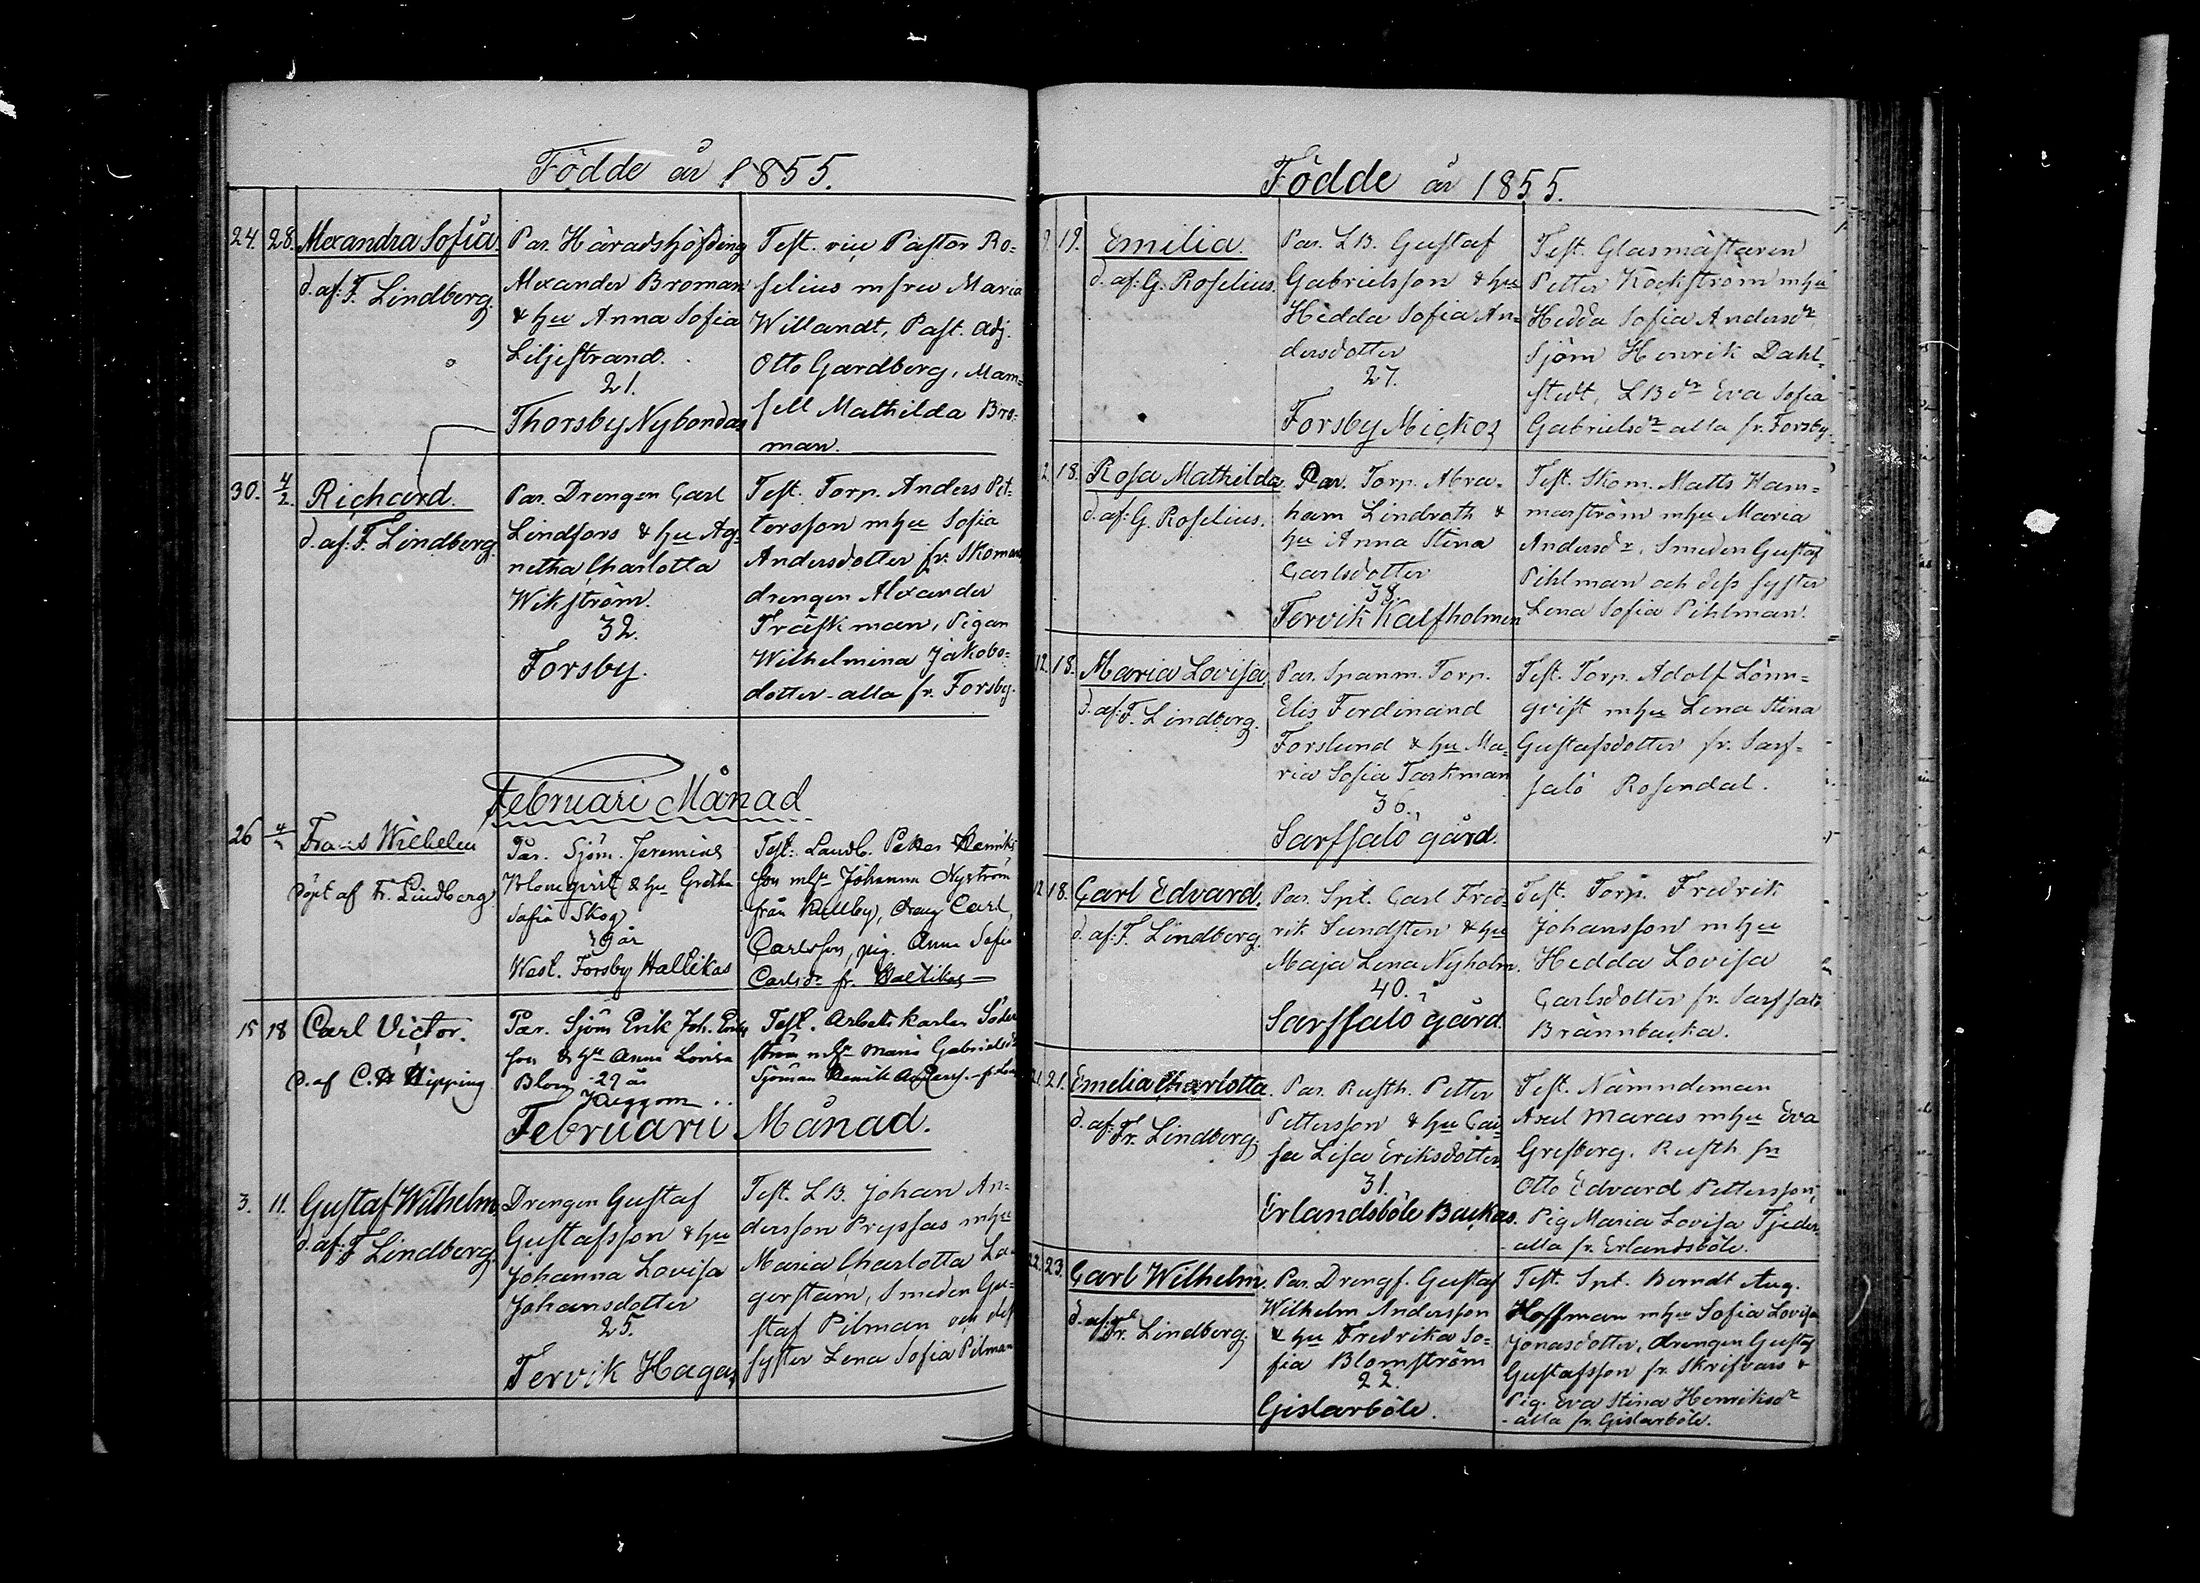 Födde år 1855.
24. 28. Alexandra Sofia
d. af: F. Lindberg.
Par. Häradshöfding
Alexander Broman
& hu Anna Sofia
Liljestrand.
21.
Thorsby Nybondas
Test. vic Pastor Ro-
selius m fru Maria
Willandt, Past. Adj.
Otto Gardberg, Mam-
sell Mathilda Bro-
man.
30. 4/2. Richard.
d. af: F. Lindberg.
Par. Drengen Carl
Lindfors & hu Ag-
netha Charlotta
Wikström.
32.
Forsby.
Test. Torp. Anders Pet-
tersson mhu Sofia
Andersdotter fr. Skomars
drengen Alexander
Träskman, Pigan
Wilhelmina Jakobs-
dotter alla fr. Forsby.
Februari Månad
26 Frans Wilhelm
Döpt af Fr. Lindberg
Par. Sjöm. Jeremias
Blomqvist & hu Gretha
Sofia Skog
år
West. Forsby Hallikas
Test. Landb. Petter Henriks
son mhu Johanna Nyström
från Kullby, dreng Carl
Carlsson, pig. Anna Sofia
Carlsdr fr. Hallikas
15 18 Carl Victor.
d. af C. H. Hipping
Par. Sjöm Erik Joh. Eriks
son & hu Anna Lovisa
Blom 29 år
Kuggom
Test. Arbets karlen Söder
ström mhu Maria Gabrielsdr
Sjöman Henrik
Februarii Månad.
3. 11. Gustaf Wilhelm
d. af: F. Lindberg.
Drengen Gustaf
Gustafsson & hu
Johanna Lovisa
Johansdotter
25.
Tervik Hagas
Test. L.B. Johan An-
dersson Pryssas mhu
Maria Charlotta La-
gerstam, Smeden Gu-
staf Pilman och dess
syster Lena Sofia Pilman
Födde år 1855.
9. 19. Emilia.
d. af: G. Roselius.
Par. L.B. Gustaf
Gabrielsson & hu
Hedda Sofia An-
dersdotter
27.
Forsby Mickos
Test. Glasmästaren
Petter Köckström mhu
Hedda Sofia Andersdr,
Sjöm Henrik Dahl-
stedt, LBdr Eva Sofia
Gabrielsdr alla fr. Forsby.
2. 18. Rosa Mathilda.
d. af: G. Roselius.
Par. Torp. Abra-
ham Lindroth &
hu Anna Stina
Carlsdotter
38.
Tervik Kalfholmen
Test. Skom. Matts Ham-
marström mhu Maria
Andersdr, Smeden Gustaf
Pihlman och dess syster
Lena Sofia Pihlman.
12. 18. Maria Lovisa.
d. af: F. Lindberg.
Par. Spanm. Torp.
Elis Ferdinand
Forslund & hu Ma-
ria Sofia Taskman
36.
Sarfsalö gård.
Test. Torp. Adolf Lönn-
qvist mhu Lena Stina
Gustafsdotter fr. Sarf-
salö Rosendal.
12. 18. Carl Edvard.
d. af: F. Lindberg.
Par. Spt. Carl Fred-
rik Sundsten & hu
Maja Lena Nyholm.
40.
Sarfsalö gård.
Test. Torp. Fredrik
Johansson mhu
Hedda Lovisa
Carlsdotter fr. Sarfsalö
Brännbacka.
21. 21. Emelia Charlotta.
d. af: Fr. Lindberg.
Par. Rusth. Petter
Pettersson & hu Caj-
sa Lisa Eriksdotter
31.
Erlandsböle Backas.
Test. Nämndeman
Axel Maras mhu Eva
Grefberg, Rusth. sn
Otto Edvard Pettersson,
Pig Maria Lovisa Tjeder
- alla fr. Erlandsböle.
22. 23. Carl Wilhelm.
d. af: Fr. Lindberg.
Par. Drengf. Gustaf
Wilhelm Andersson
& hu Fredrika So-
fia Blomström
22.
Gislarböle.
Test. Spt. Berndt Aug.
Hoffman mhu Sofia Lovisa
Jonasdotter, drengen Gustaf
Gustafsson fr. Skrifvars &
Pig. Eva Stina Henriksdr
- alla fr. Gislarböle.